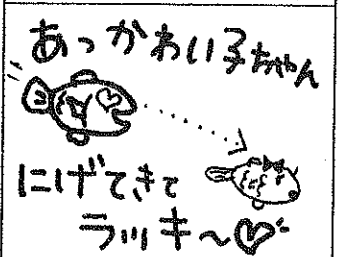 あっかわい子ちゃん
にげてきて
ラッキ～♡